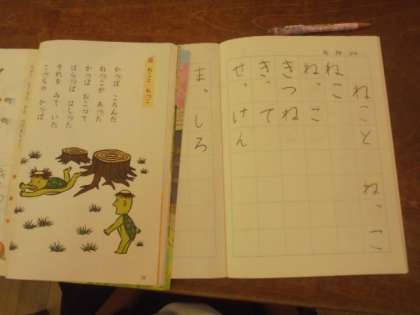 かっぱ ころんだ
ねっこが あった
かっぱ おこって
はらっぱ はしった
それを みて いた
ねこと ねっこ
ねこ
ねっこ
きつね
きって
せっけん
まっしろ